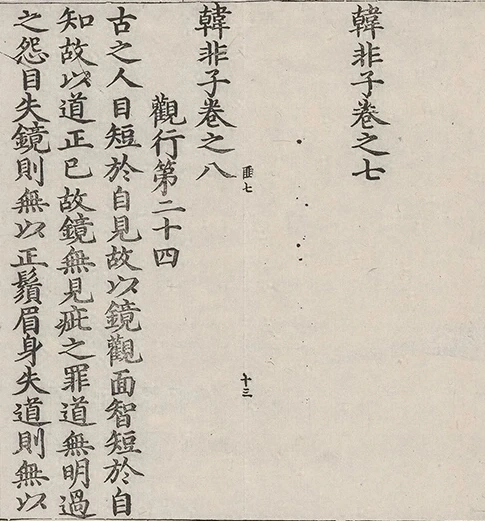 韓非子卷之七
匪七
十三
韓非子卷之八
觀行第二十四
古之人目短於自見故以鏡觀面智短於自
知故以道正已故鏡無見疵之罪道無明過
之怨目失鏡則無以正鬚眉身失道則無以